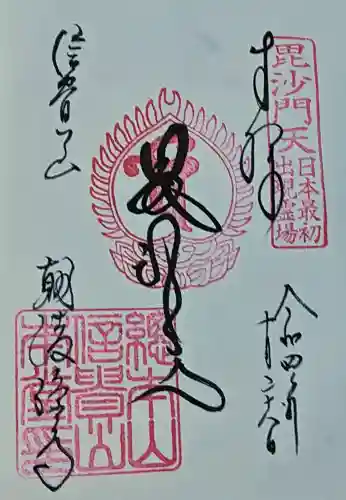 奉拝
毘沙門天
日本最初
出現霊場
令和四年
十二月廿八日
毘沙門天
信貴山
總本山
信貴山
朝護孫子寺